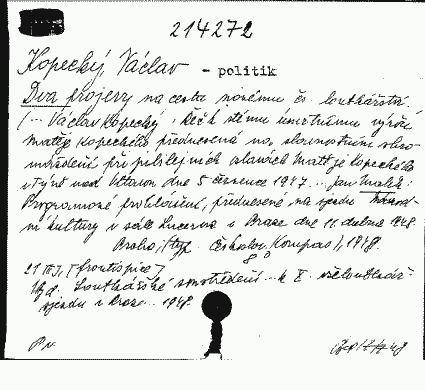 214272
Kopecký, Václav - politik
Dva projevy na cestu novému čs. loutkářství.
/... Václav Kopecký: Řeč k stému úmrtnímu výročí
Matěje Kopeckého přednesená na slavnostním shro-
máždění při jubilejních oslavách Matěje Kopeckého
v Týně nad Vltavou dne 5 července 1947... Jan Malík:
Programové prohlášení, přednesené na sjezdu Národ-
ní kultury v sále Lucerna v Praze dne 11. dubna 1948.
Praha, (typ. Českoslov. Kompas), 1948.
21 [frontispice]
Vyd. Loutkářské soustředění... k X.
sjezdu v Praze... 1948.